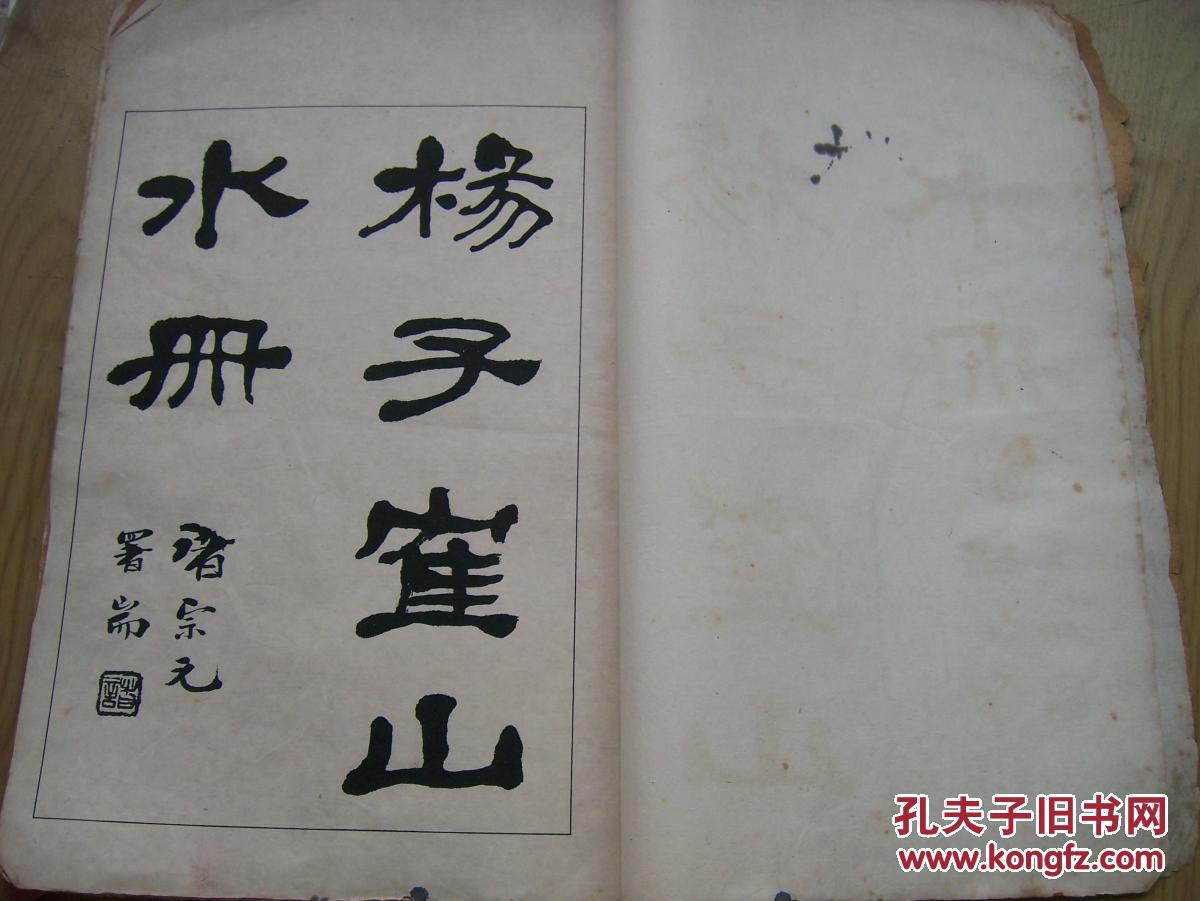 楊子隺山
水冊
諸宗元
署耑
孔夫子旧书网
www.kongfz.com